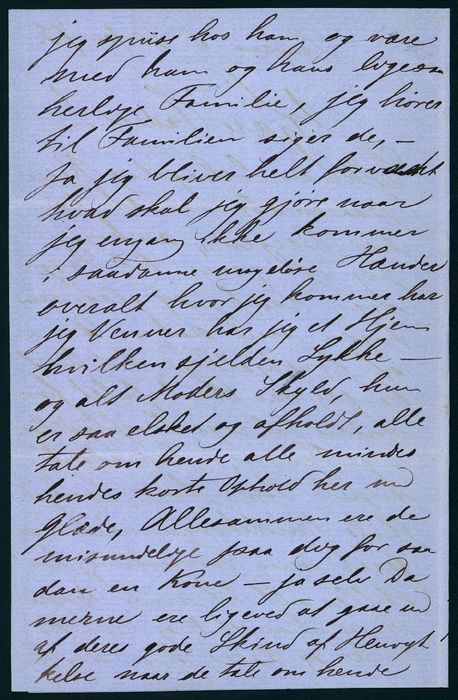 jeg spiise hos ham og være
med ham og hans ligesaa
herlige Familie, jeg hører
til Familien siger de, –
Ja jeg bliver helt forvænt
hvad skal jeg gjøre naar
jeg engang ikke kommer
i saadanne Hænder
overalt hvor jeg kommer har
jeg Venner har jeg et Hjem
hvilken sjelden Lykke –
og alt Moders Skyld, hun
er saa elsket og afholdt, alle
tale om hende alle mindes
hendes korte Ophold her med
Glæde, Allesammen ere de
misundelige paa dig for saa
dan en Kone – ja selv Da
merne ere ligeved at gaae ud
af deres gode Skind af Henryk
kelse naar de tale om hende